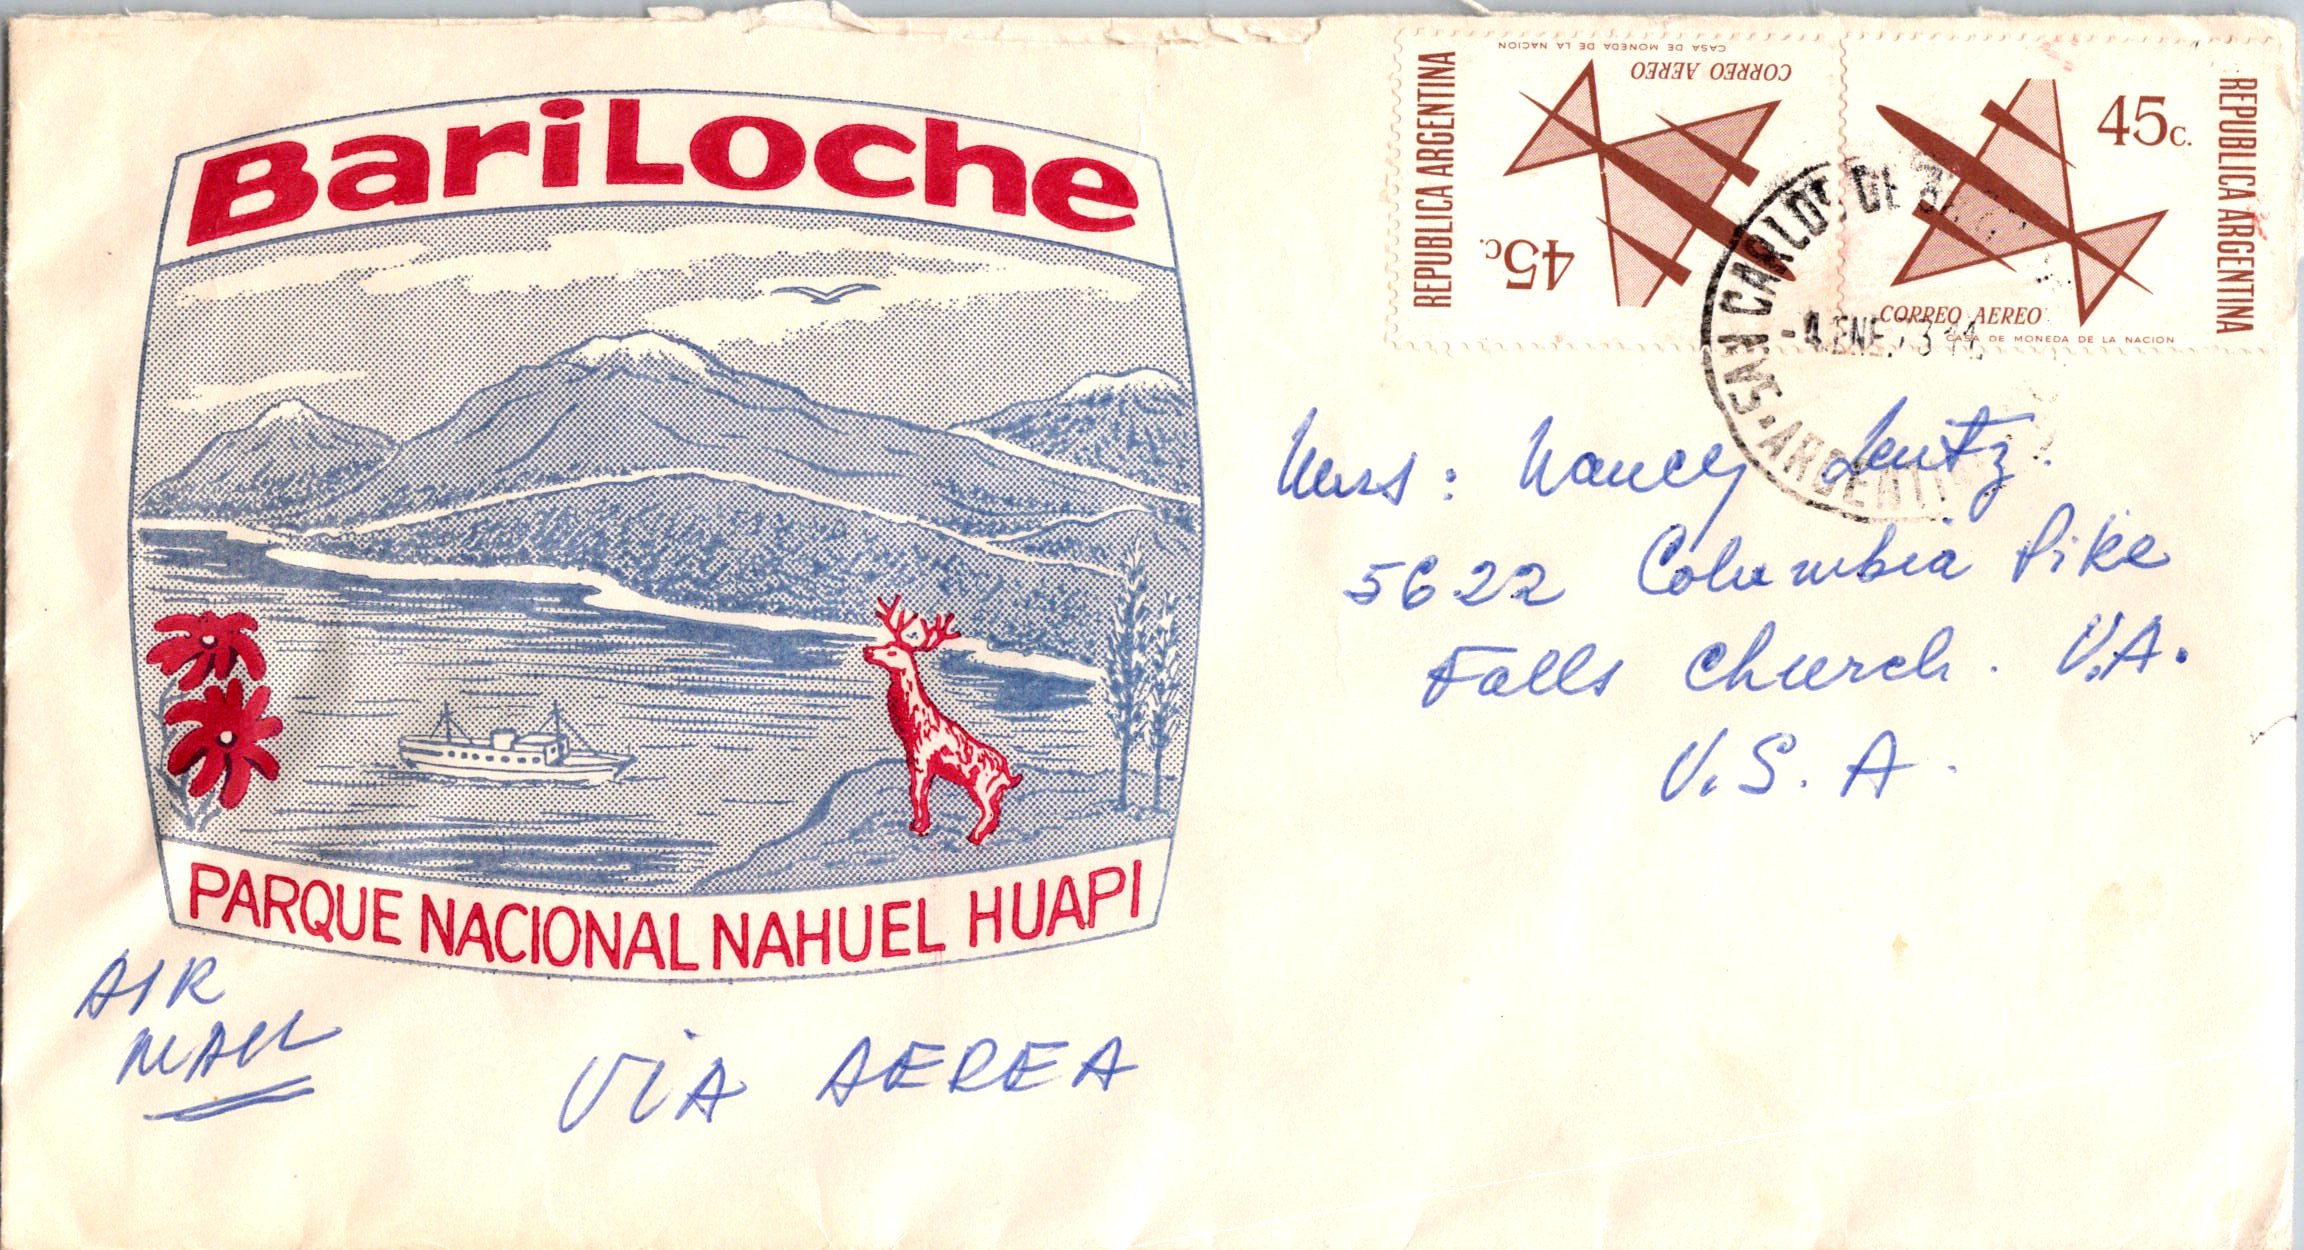 BariLoche
PARQUE NACIONAL NAHUEL HUAPI
AIR
MAIL
VIA AEREA
REPUBLICA ARGENTINA
CASA DE MONEDA DE LA NACION
CORREO AEREO
45c.
45c.
REPUBLICA ARGENTINA
CORREO AEREO
CASA DE MONEDA DE LA NACION
SAN CARLOS DE
ENE.
Mrs: Nancy Lentz.
5622 Columbia Pike
Falls Church. V.A.
U.S.A.